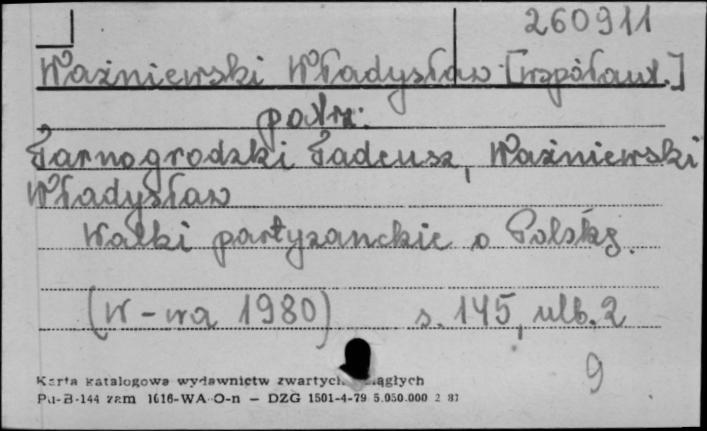 260911
Waźniewski Władysław [współaut.]
patrz:
Tarnogrodzki Tadeusz, Waźniewski
Władysław
Walki partyzanckie o Polskę.
(W-wa 1980) s. 145, ulb. 2
9
Karta katalogowa wydawnictw zwartych ciągłych
Pu-B-144 zam 1616-WA O-n — DZG 1501-4-79 5.050.000 2 81